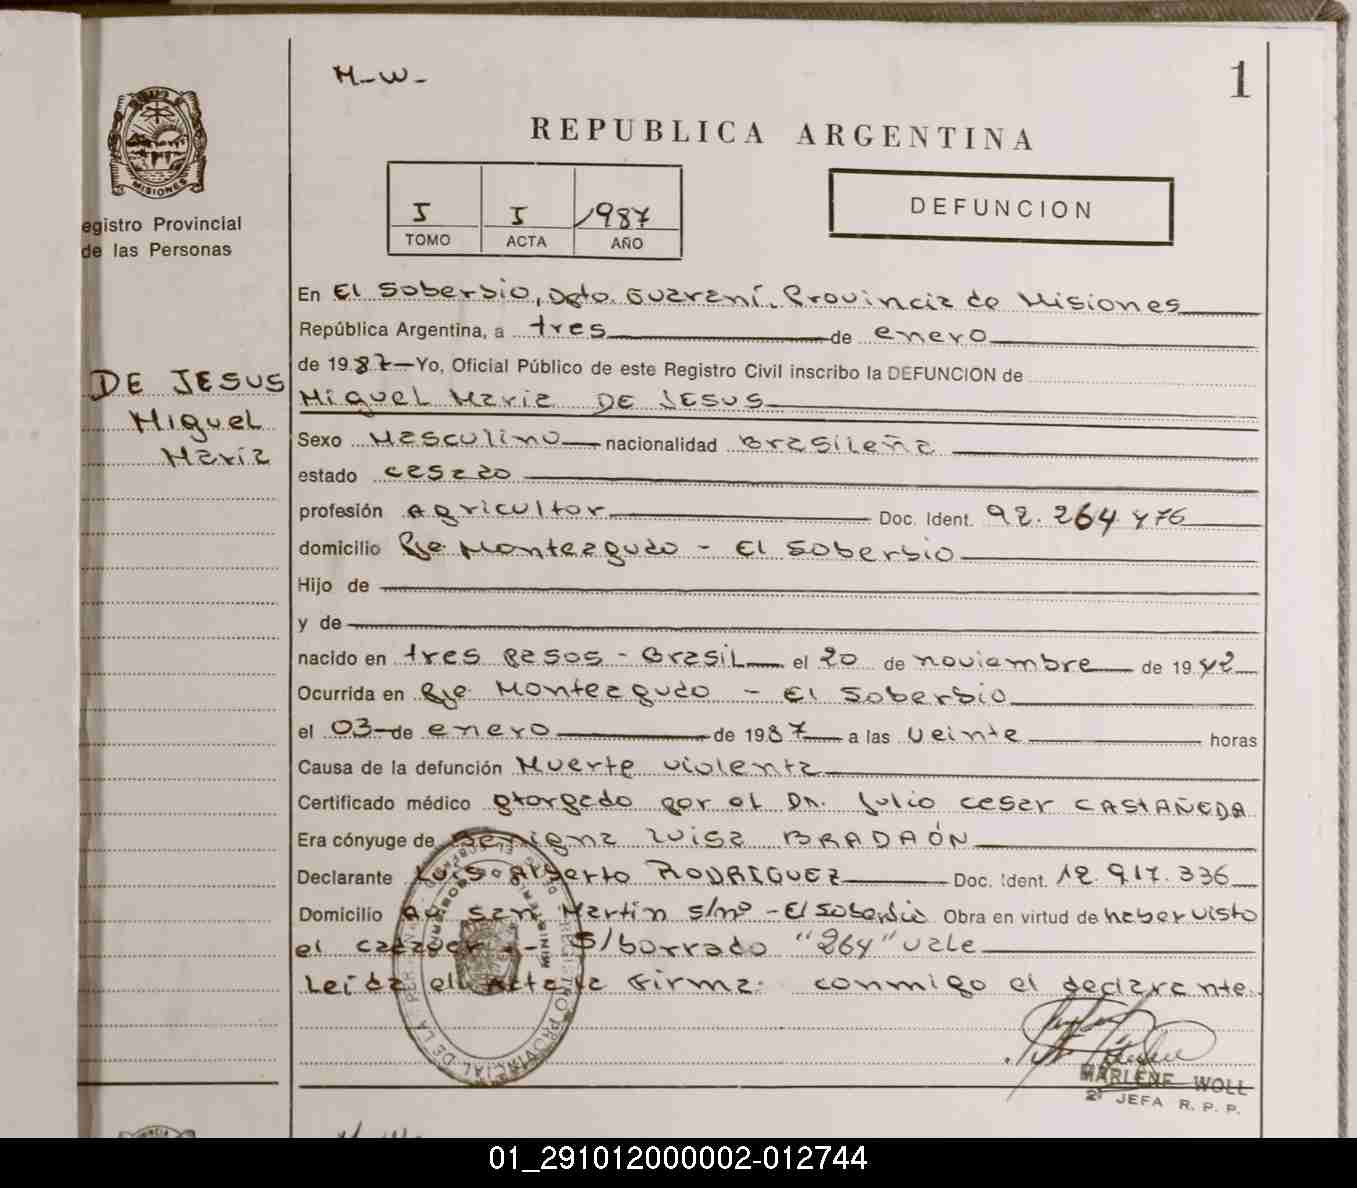 M-W-
1
REPUBLICA ARGENTINA
MISIONES
egistro Provincial
de las Personas
I I 1987
TOMO ACTA AÑO
DEFUNCION
En El Soberbio, Dpto. Guaraní. Provincia de Misiones
República Argentina, a tres de enero
de 1987-Yo, Oficial Público de este Registro Civil inscribo la DEFUNCION de
DE JESUS
Miguel
Maria
Miguel Maria DE JESUS
Sexo Masculino nacionalidad Brasileña
estado casado
profesión Agricultor Doc. Ident. 92.264 476
domicilio Pje Monteagudo - El Soberbio
Hijo de
y de
nacido en tres Pasos - Brasil el 20 de noviembre de 1942
Ocurrida en Pje Monteagudo - El Soberbio
el 03 de enero de 1987 a las veinte horas
Causa de la defunción Muerte violenta
Certificado médico otorgado por el Dr. Julio Cesar CASTAÑEDA
Era cónyuge de Benigna Luisa BRADAÓN
Declarante Luis Alberto RODRIGUEZ Doc. Ident. 12.917.336
Domicilio Av San Martin s/nº - El Soberbio Obra en virtud de haber visto
el cadaver - S/borrado "264" vale
Leida el Acta la firma conmigo el declarante.
REGISTRO PROVINCIAL DE LA
MARLENE WOLL
2ª JEFA R. P. P.
01_291012000002-012744